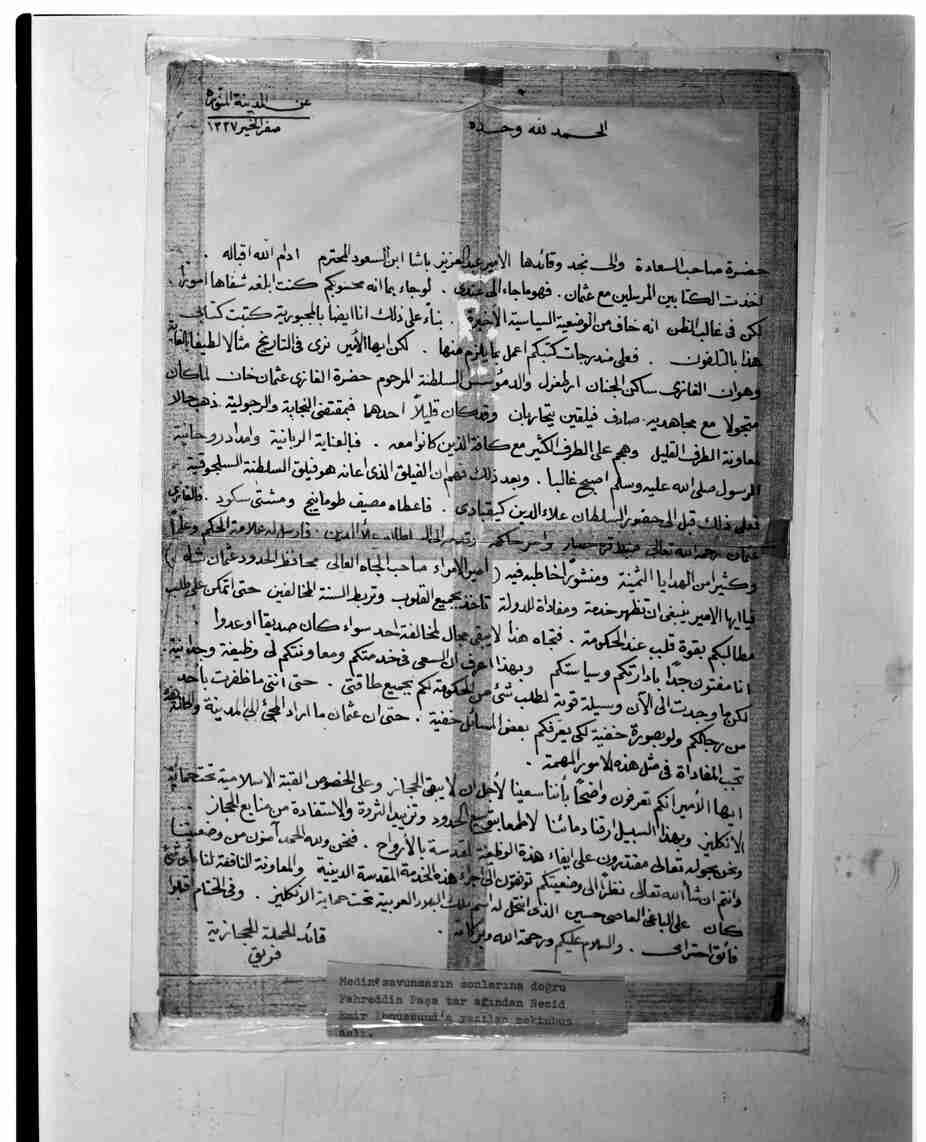 عن المدينة المنورة
صفر الخير ١٣٣٧
الحمد لله وحده
حضرة صاحب السعادة والى نجد وقائدها الأمير عبدالعزيز باشا ابن السعود المحترم ادام الله اقباله .
اخذت الكتابين المرسلين مع عثمان . فهو ما جاء الى عندى . لو جاء بما انه محسوبكم كنت ابلغه شفاها امورا .
لكن فى غالب الظن انه خاف من الوضعية السياسية الأخيرة . بناء على ذلك انا ايضا بالمجبورية كتبت كتابى
هذا بالتلفون . فعلى مندرجات كتبكم اعمل بما يلزم منها . لكن ايها الأمير نرى فى التاريخ مثالا لطيفا للغاية
وهو ان الغازى ساكن الجنان ارطغرل والد مؤسس السلطنة المرحوم حضرة الغازى عثمان خان لما كان
متجولا مع مجاهديه صادف فيلقين يتحاربان وقد كان قليلاً احدهما فبمقتضى النجابة والرجولية ذهب حالا
لمعاونة الطرف القليل وهجم على الطرف الكثير مع كافة الذين كانوا معه . فبالعناية الربانية وامداد روحانية
الرسول صلى الله عليه وسلم اصبح غالبا . وبعد ذلك فهم ان الفيلق الذى اعانه هو فيلق السلطنة السلجوقية .
فعلى ذلك قبل الى حضور السلطان علاء الدين كيقبادى . فاعطاه مصيف طومانيج ومشتى سكود . والغازى
عثمان رحمه الله تعالى علاء الدين . فارسل له علامة الحكم وعلماً
وكثيرا من الهدايا الثمينة ومنشورا خاطبه فيه ( امير الامراء صاحب الجاه العالى محافظ الحدود عثمان شاه )
فيا ايها الامير ينبغى ان تظهر خدمة ومفاداة للدولة تأخذ بجميع القلوب وتربط السنة المخالفين حتى اتمكن على طلب
مطالبكم بقوة قلب عند الحكومة . فتجاه هذا لا يبقى مجال لمخالفة احد سواء كان صديقا او عدوا .
انا مفتون جدا بادارتكم وسياستكم وبهذا اعرف ان السعى فى خدمتكم ومعاونتكم لى وظيفة وجدانية .
لكن ما وجدت الى الآن وسيلة قوية لطلب شئ من الحكومة لكم بجميع طاقتى . حتى اننى ما ظفرت بأحد
من رجالكم ولو بصورة خفية لكى يعرفكم بعض المسائل خفية . حتى ان عثمان ما اراد المجئ الى المدينة
تجب المفاداة فى مثل هذه الامور المهمة .
ايها الأمير انكم تعرفون واضحًا بأننا سعينا لأجل ان لا يبقى الحجاز وعلى الخصوص القبة الاسلامية تحت حماية
الانكليز وبهذا السبيل ارقنا دمائنا لا طمعا بتوسيع الحدود وتزييد الثروة والاستفادة من منابع الحجاز
ونحن بحوله تعالى مقتدرون على ايفاء هذه الوظيفة المقدسة بالأرواح . فنحن ولله الحمد آمنون من وضعيتنا
وانتم ان شاء الله تعالى نظرا الى وضعيتكم توفقون الى اجراء هذه الخدمة المقدسة الدينية والمعاونة النافعة لنا بأى شئ
كان على الباغى العاصى حسين الذى انتحل له اسم ملك البلاد العربية تحت حماية الانكليز . وفى الختام اقبلوا
فائق احترامى . والسلام عليكم ورحمة الله وبركاته .
قائد الحملة الحجازية
فريق
Medine savunmasın sonlarına doğru
Fahreddin Paşa tar ağından Necid
Emir İbnussuud'a yazılan mektubun
aslı.